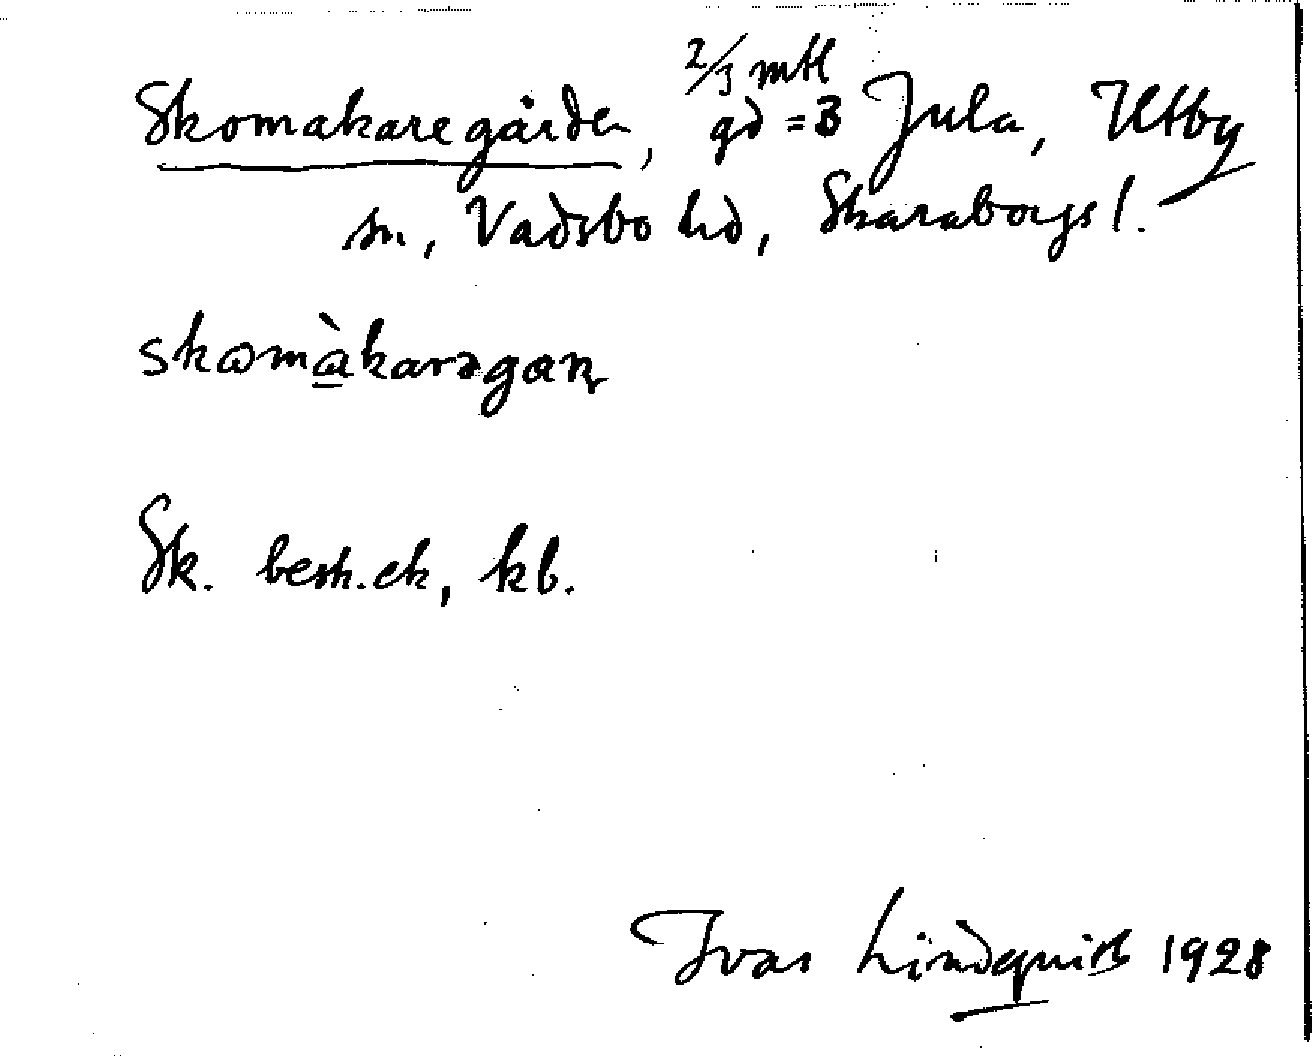 Skomakaregården, 2/3 mtl gd = 3 Jula, Utby
sn, Vadsbo hd, Skaraborgs l.
skomàkarəgaɳ
Sk. besk. ek, kb.
Ivar Lindquist 1928